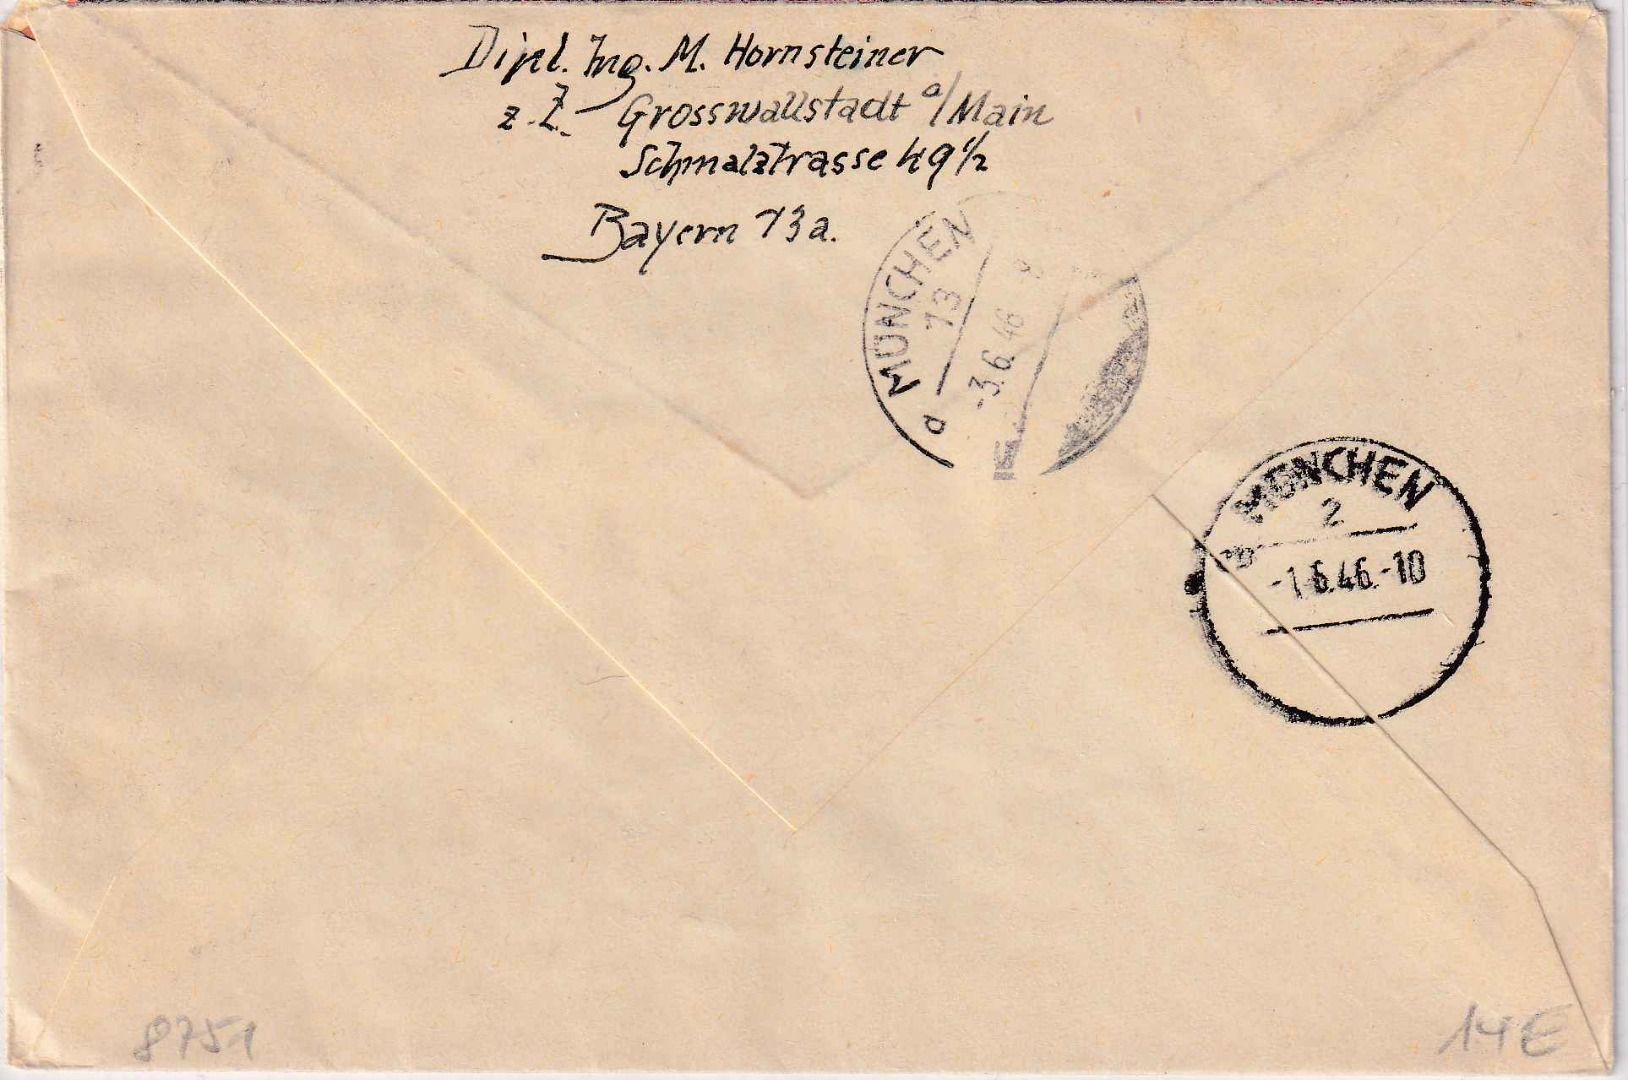 Dipl. Ing. M. Hornsteiner
z. Z. Grosswallstadt a/Main
Schmalzstrasse 49 1/2
Bayern 13a.
MÜNCHEN
13
-3.6.46
a
MÜNCHEN
2
-1.6.46.-10
8751
14E